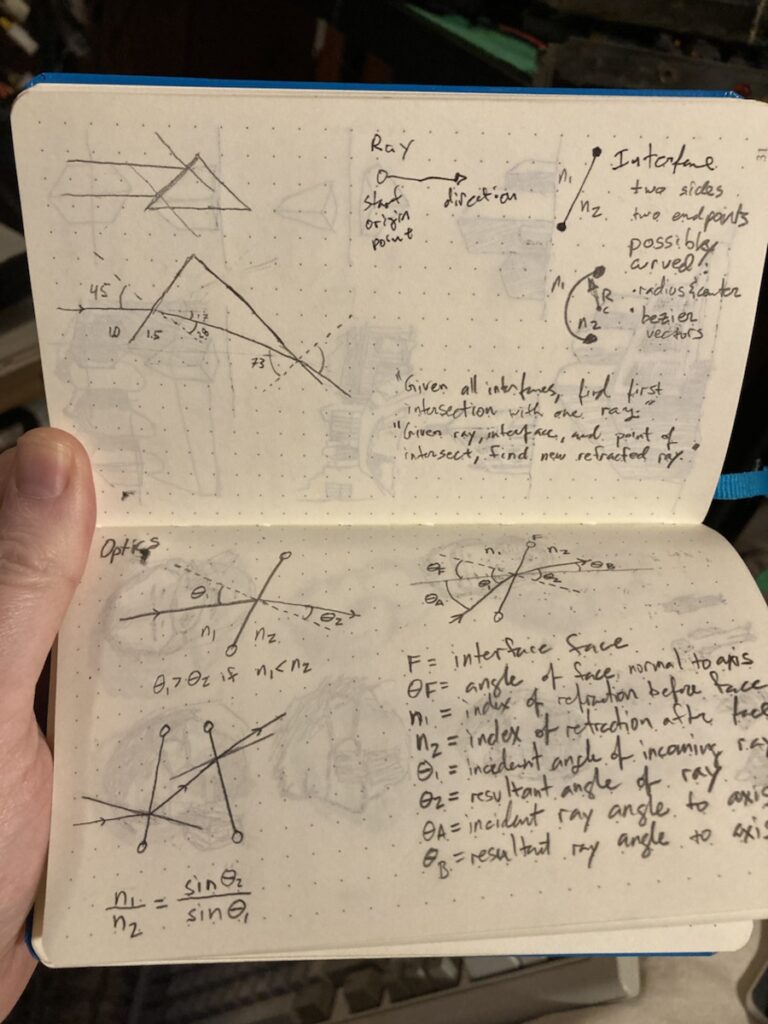 31
Ray
start
origin
point
direction
n₁
n₂
Interface
two sides
two endpoints
possibly
curved?
• radius & center
• bezier
vectors
n₁
n₂
R
c
45
1.0
1.5
73
"Given all interfaces, find first
intersection with one ray."
"Given ray, interface, and point of
intersect, find new refracted ray."
Optics
θ₁
n₁
n₂
θ₂
θ₁ > θ₂ if n₁ < n₂
n₁/n₂ = sinθ₂/sinθ₁
F
n₁
n₂
θF
θ₁
θ₂
θB
θA
F = interface face
θF = angle of face, normal to axis
n₁ = index of refraction before face
n₂ = index of refraction after face
θ₁ = incedent angle of incoming ray
θ₂ = resultant angle of ray
θA = incident ray angle to axis
θB = resultant ray angle to axis